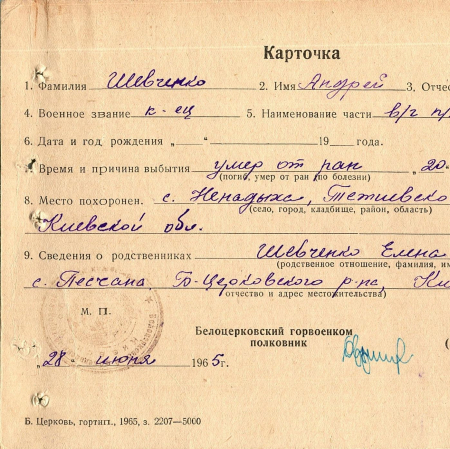 Карточка
1. Фамилия Шевченко 2. Имя Андрей 3. Отчес
4. Военное звание к-ец 5. Наименование части в/ч п/
6. Дата и год рождения „ “ 19 года.
Время и причина выбытия умер от ран „20
(погиб, умер от ран (по болезни)
8. Место похоронен. с. Ненадыха, Тетиевско
(село, город, кладбище, район, область)
Киевской обл.
9. Сведения о родственниках Шевченко Елена
(родственное отношение, фамилия, им
с. Песчана, Б-Церковского р-на, Ки
отчество и адрес местожительства)
М. П.
Белоцерковский горвоенком
полковник (
„28“ июня 1965г.
Б. Церковь, гортип., 1965, з. 2207—5000